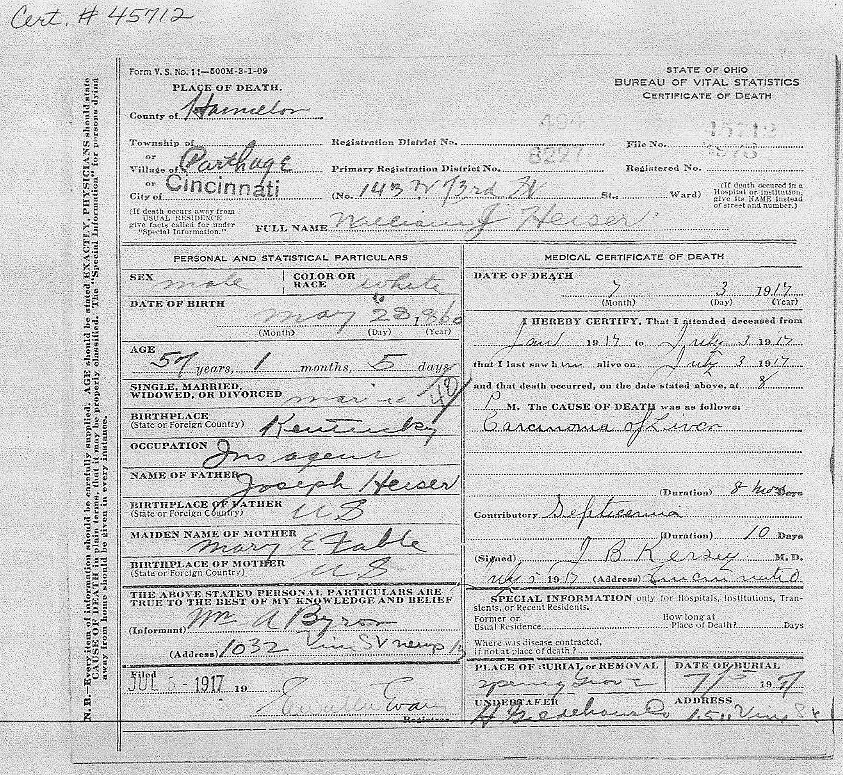 Cert. # 45712
Form V. S. No. 11—500M-3-1-09
PLACE OF DEATH.
STATE OF OHIO
BUREAU OF VITAL STATISTICS
CERTIFICATE OF DEATH
County of Hamilton
Township of
Registration District No. 494
File No.
or
Village of Carthage
Primary Registration District No. 8227
Registered No.
or
City of Cincinnati
(No. 143 W 73rd St St., Ward)
(If death occured in a Hospital or institution, give its NAME instead of street and number.)
(If death occurs away from USUAL RESIDENCE give facts called for under "Special Information.")
FULL NAME William J Heiser
PERSONAL AND STATISTICAL PARTICULARS
SEX male
COLOR OR RACE white
DATE OF BIRTH May 28, 1860
(Month) (Day) (Year)
AGE
57 years, 1 months, 5 days
SINGLE, MARRIED, WIDOWED, OR DIVORCED
BIRTHPLACE
(State or Foreign Country) Kentucky
OCCUPATION Ins agent
NAME OF FATHER Joseph Heiser
BIRTHPLACE OF FATHER
(State or Foreign Country) US
MAIDEN NAME OF MOTHER Mary E Fable
BIRTHPLACE OF MOTHER
(State or Foreign Country) US
THE ABOVE STATED PERSONAL PARTICULARS ARE TRUE TO THE BEST OF MY KNOWLEDGE AND BELIEF
(Informant) Wm A Byron
(Address) 1032 Vine St
Filed
JUL 5 - 1917 19
Registrar
MEDICAL CERTIFICATE OF DEATH
DATE OF DEATH
7 3 1917
(Month) (Day) (Year)
I HEREBY CERTIFY, That I attended deceased from
1917 to July 3 1917
that I last saw him alive on July 3 1917
and that death occurred, on the date stated above, at 8
P. M. The CAUSE OF DEATH was as follows:
Carcinoma of Liver
(Duration) 8 mos Days
Contributory Septicemia
(Duration) 10 Days
(Signed) J B Kersey M. D.
1917 (Address) Cincinnati O
SPECIAL INFORMATION only for Hospitals, Institutions, Transients, or Recent Residents.
Former or Usual Residence
How long at Place of Death? Days
Where was disease contracted, if not at place of death?
PLACE OF BURIAL or REMOVAL
Spring Grove
DATE OF BURIAL
7/5 1917
UNDERTAKER
ADDRESS
Vine St
N. B.—Every item of information should be carefully supplied. AGE should be stated EXACTLY. PHYSICIANS should state
CAUSE OF DEATH in plain terms, that it may be properly classified. The "Special Information" for persons dying
away from home should be given in every instance.